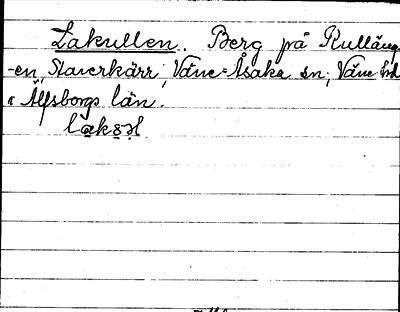 Lakullen. Berg på Kulläng
-en, Staverkärr, Väne-Åsaka sn, Väne hd
i Älfsborgs län.